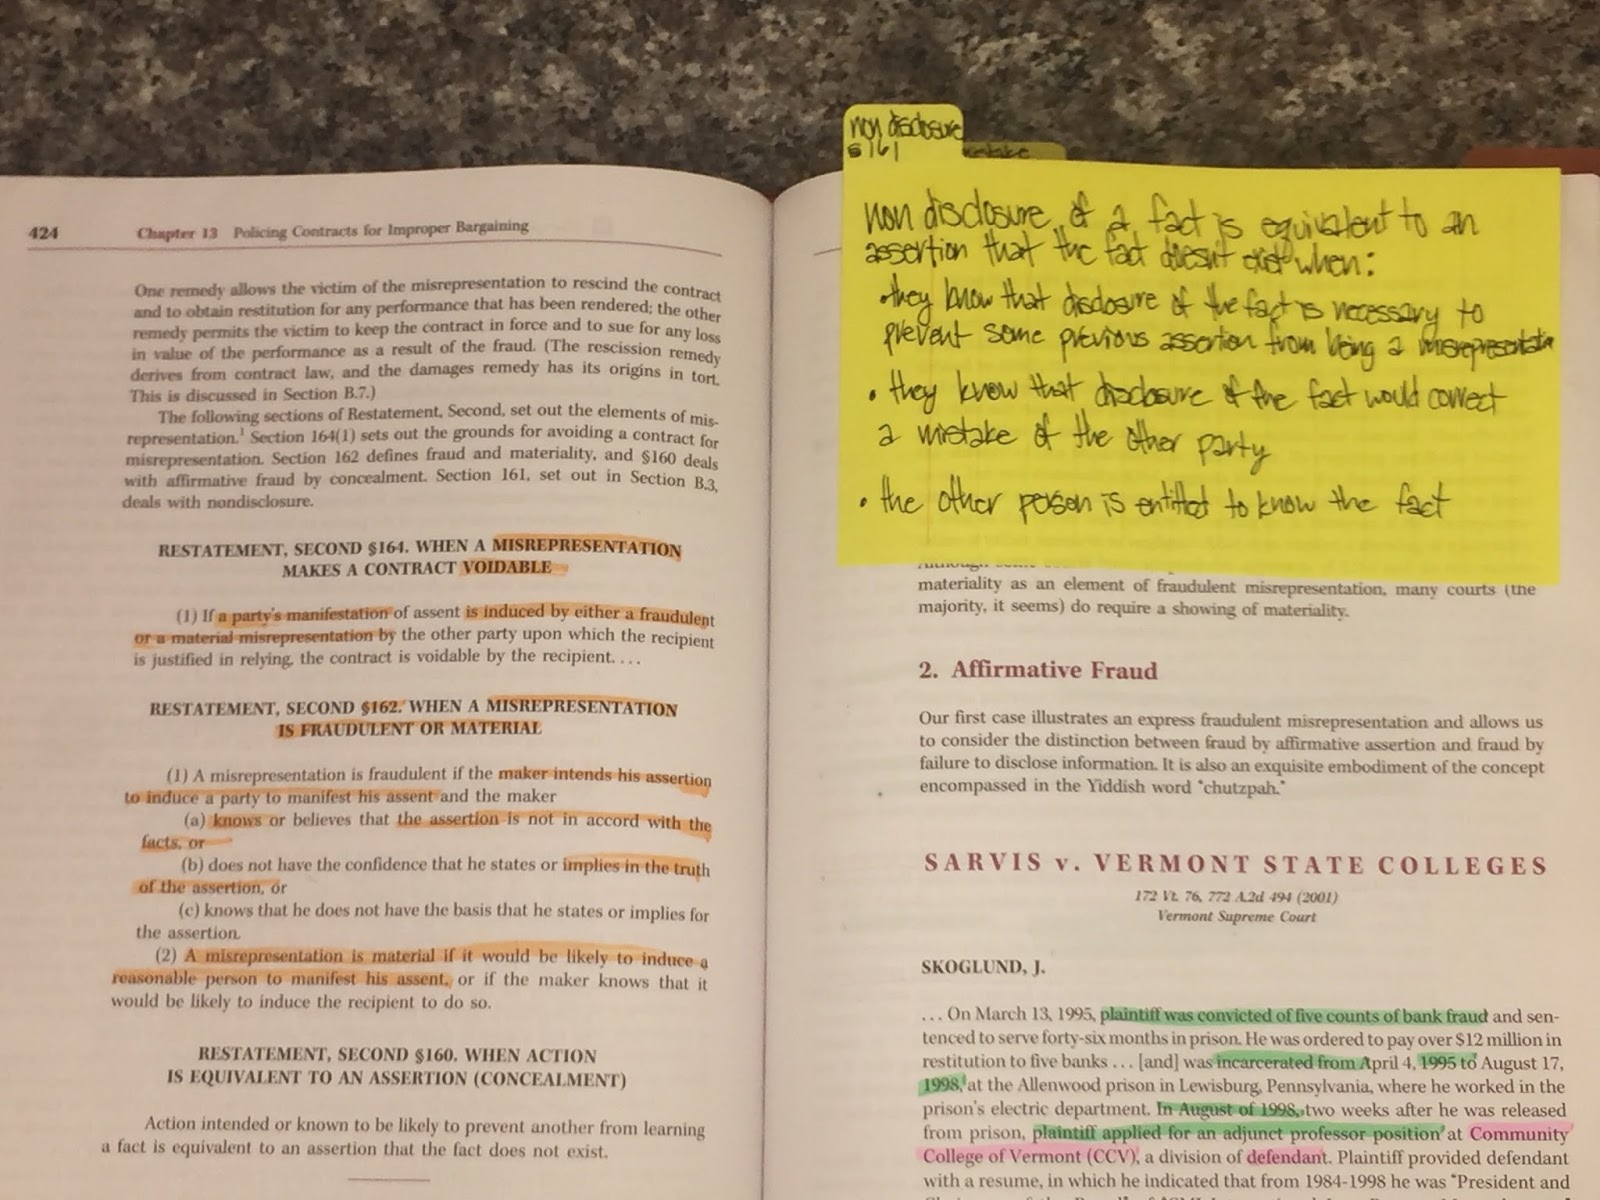 424 Chapter 13 Policing Contracts for Improper Bargaining
One remedy allows the victim of the misrepresentation to rescind the contract
and to obtain restitution for any performance that has been rendered; the other
remedy permits the victim to keep the contract in force and to sue for any loss
in value of the performance as a result of the fraud. (The rescission remedy
derives from contract law, and the damages remedy has its origins in tort.
This is discussed in Section B.7.)
The following sections of Restatement, Second, set out the elements of mis-
representation.¹ Section 164(1) sets out the grounds for avoiding a contract for
misrepresentation. Section 162 defines fraud and materiality, and §160 deals
with affirmative fraud by concealment. Section 161, set out in Section B.3,
deals with nondisclosure.
RESTATEMENT, SECOND §164. WHEN A MISREPRESENTATION
MAKES A CONTRACT VOIDABLE
(1) If a party's manifestation of assent is induced by either a fraudulent
or a material misrepresentation by the other party upon which the recipient
is justified in relying, the contract is voidable by the recipient. . . .
RESTATEMENT, SECOND §162. WHEN A MISREPRESENTATION
IS FRAUDULENT OR MATERIAL
(1) A misrepresentation is fraudulent if the maker intends his assertion
to induce a party to manifest his assent and the maker
(a) knows or believes that the assertion is not in accord with the
facts, or
(b) does not have the confidence that he states or implies in the truth
of the assertion, or
(c) knows that he does not have the basis that he states or implies for
the assertion.
(2) A misrepresentation is material if it would be likely to induce a
reasonable person to manifest his assent, or if the maker knows that it
would be likely to induce the recipient to do so.
RESTATEMENT, SECOND §160. WHEN ACTION
IS EQUIVALENT TO AN ASSERTION (CONCEALMENT)
Action intended or known to be likely to prevent another from learning
a fact is equivalent to an assertion that the fact does not exist.
non disclosure
§ 161
mistake
non disclosure of a fact is equivalent to an
assertion that the fact doesn't exist when:
• they know that disclosure of the fact is necessary to
prevent some previous assertion from being a misrepresentation
• they know that disclosure of the fact would correct
a mistake of the other party
• the other person is entitled to know the fact
Although some
materiality as an element of fraudulent misrepresentation, many courts (the
majority, it seems) do require a showing of materiality.
2. Affirmative Fraud
Our first case illustrates an express fraudulent misrepresentation and allows us
to consider the distinction between fraud by affirmative assertion and fraud by
failure to disclose information. It is also an exquisite embodiment of the concept
encompassed in the Yiddish word "chutzpah."
SARVIS v. VERMONT STATE COLLEGES
172 Vt. 76, 772 A.2d 494 (2001)
Vermont Supreme Court
SKOGLUND, J.
. . . On March 13, 1995, plaintiff was convicted of five counts of bank fraud and sen-
tenced to serve forty-six months in prison. He was ordered to pay over $12 million in
restitution to five banks . . . [and] was incarcerated from April 4, 1995 to August 17,
1998, at the Allenwood prison in Lewisburg, Pennsylvania, where he worked in the
prison's electric department. In August of 1998, two weeks after he was released
from prison, plaintiff applied for an adjunct professor position at Community
College of Vermont (CCV), a division of defendant. Plaintiff provided defendant
with a resume, in which he indicated that from 1984-1998 he was "President and